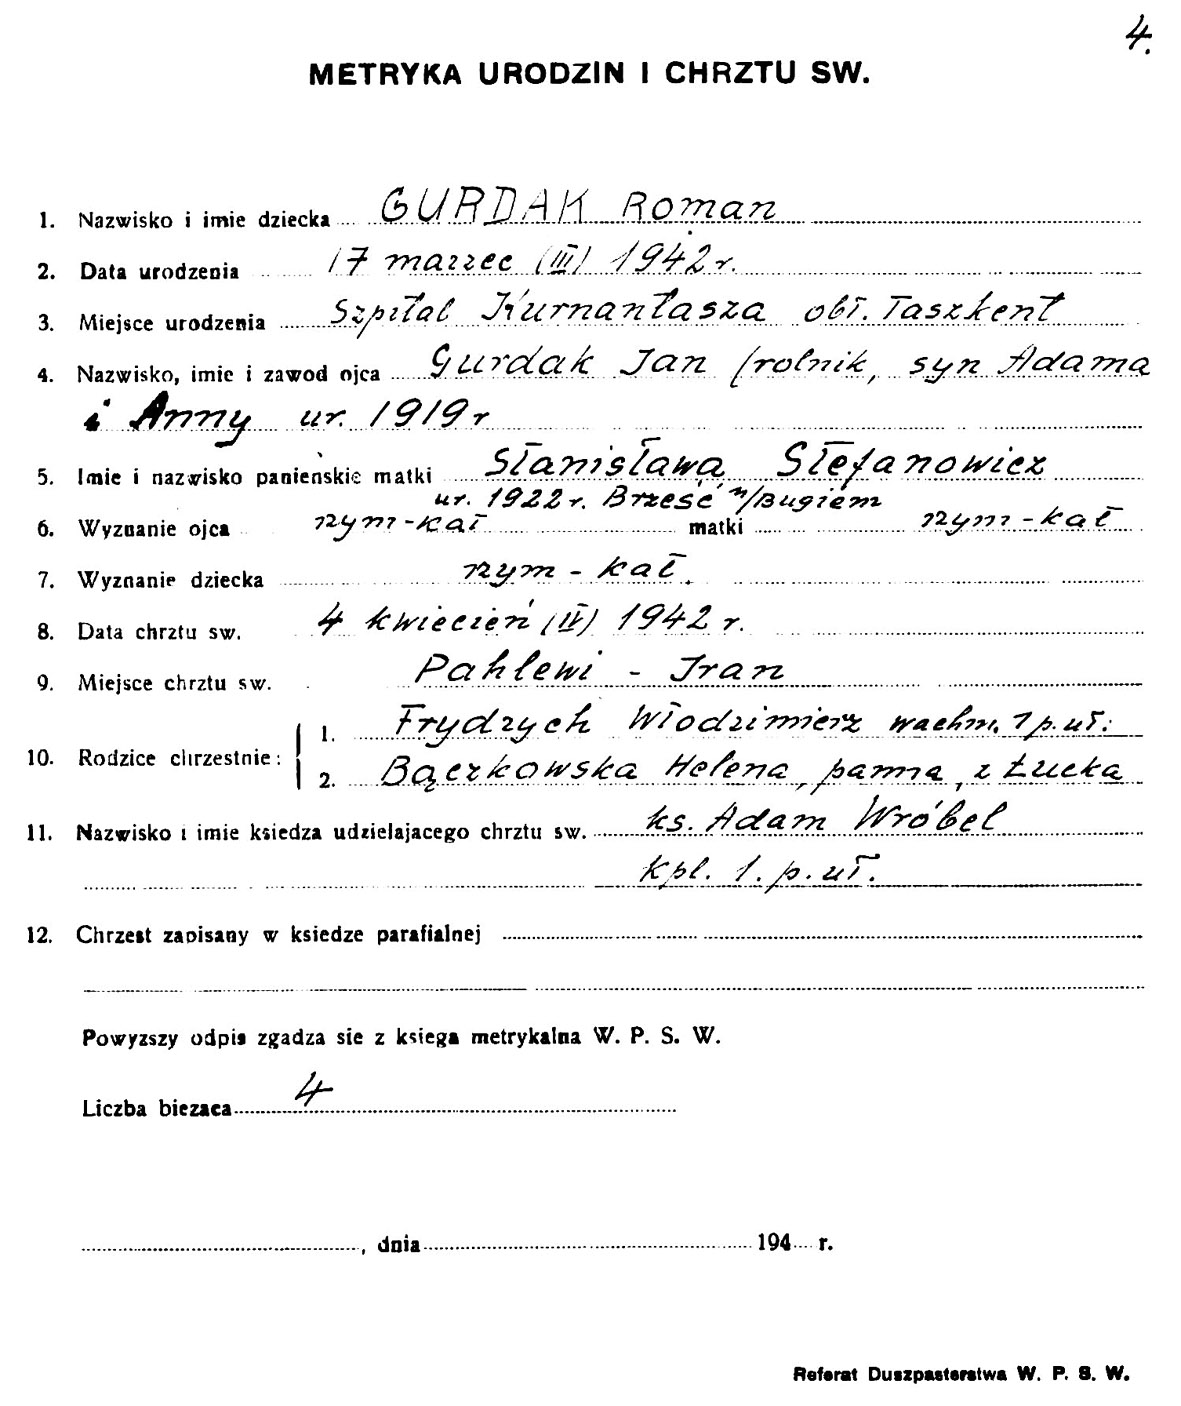 4.
METRYKA URODZIN I CHRZTU SW.
1. Nazwisko i imie dziecka GURDAK Roman
2. Data urodzenia 17 marzec (III) 1942 r.
3. Miejsce urodzenia Szpital Kurnantasza obł. Taszkent
4. Nazwisko, imie i zawod ojca Gurdak Jan (rolnik, syn Adama
i Anny ur. 1919 r
5. Imie i nazwisko panieńskie matki Stanisława Stefanowicz
ur. 1922 r. Brześć n/Bugiem
6. Wyznanie ojca rzym-kat matki rzym-kat
7. Wyznanie dziecka rzym-kat.
8. Data chrztu sw. 4 kwiecień (IV) 1942 r.
9. Miejsce chrztu sw. Pahlewi - Iran
10. Rodzice chrzestnie: 1. Frydrych Włodzimierz wachm. 1 p. uł.
2. Bączkowska Helena, panna, z Łucka
11. Nazwisko i imie ksiedza udzielajacego chrztu sw. ks. Adam Wróbel
kpl. 1. p. uł.
12. Chrzest zapisany w ksiedze parafialnej
Powyzszy odpis zgadza sie z ksiega metrykalna W. P. S. W.
Liczba biezaca 4
, dnia 194 r.
Referat Duszpasterstwa W. P. S. W.